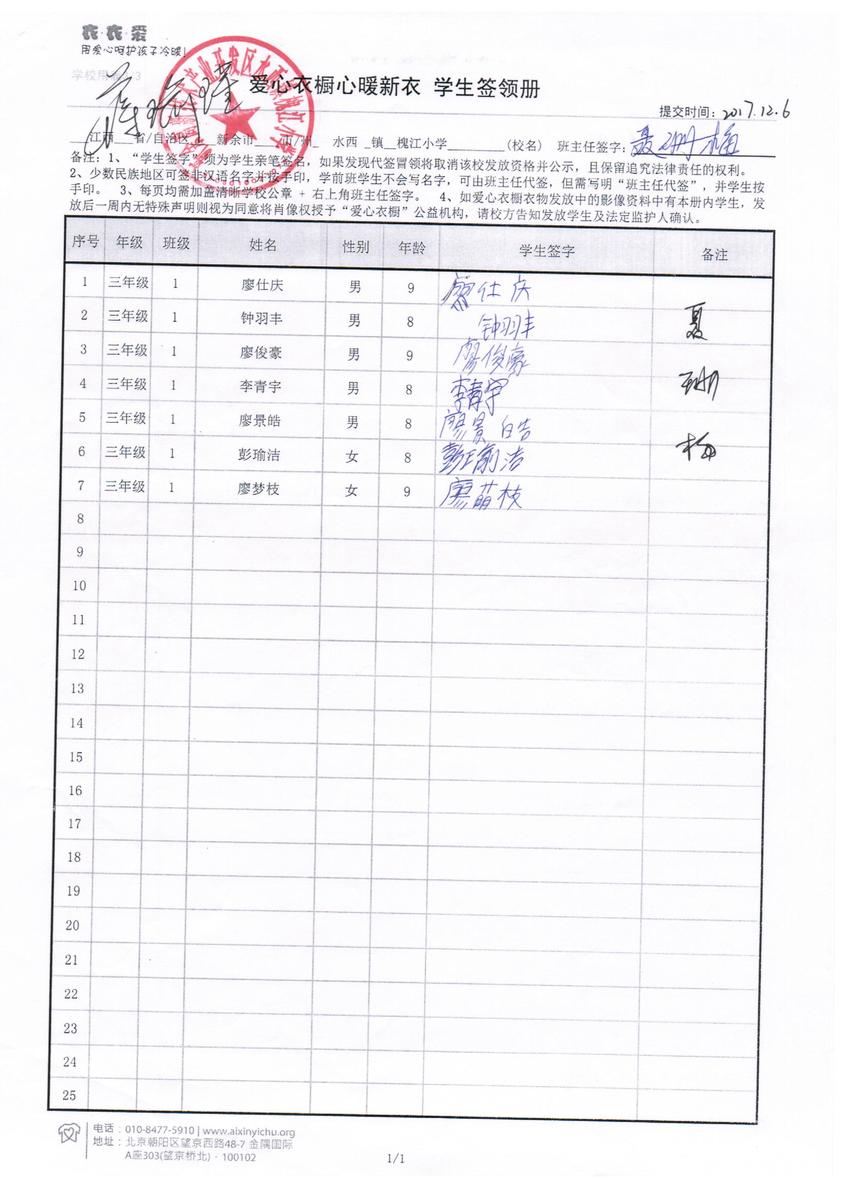 衣·衣·爱
用爱心呵护孩子冷暖!
爱心衣橱心暖新衣 学生签领册
提交时间：2017.12.6
江西 省/自治区 新余市 市/州 水西 镇 槐江小学 (校名) 班主任签字：
备注：1、“学生签字”须为学生亲笔签名，如果发现代签冒领将取消该校发放资格并公示，且保留追究法律责任的权利。
2、少数民族地区可签非汉语名字并按手印，学前班学生不会写名字，可由班主任代签，但需写明“班主任代签”，并学生按
手印。 3、每页均需加盖清晰学校公章 + 右上角班主任签字。 4、如爱心衣橱衣物发放中的影像资料中有本册内学生，发
放后一周内无特殊声明则视为同意将肖像权授予“爱心衣橱”公益机构，请校方告知发放学生及法定监护人确认。
序号 年级 班级 姓名 性别 年龄 学生签字 备注
1 三年级 1 廖仕庆 男 9 廖仕庆
2 三年级 1 钟羽丰 男 8 钟羽丰
3 三年级 1 廖俊豪 男 9 廖俊豪
4 三年级 1 李青宇 男 8 李青宇
5 三年级 1 廖景皓 男 8 廖景皓
6 三年级 1 彭瑜洁 女 8 彭瑜洁
7 三年级 1 廖梦枝 女 9 廖萌枝
8
9
10
11
12
13
14
15
16
17
18
19
20
21
22
23
24
25
电话：010-8477-5910 | www.aixinyichu.org
地址：北京朝阳区望京西路48-7 金隅国际
A座303(望京桥北)·100102
1/1